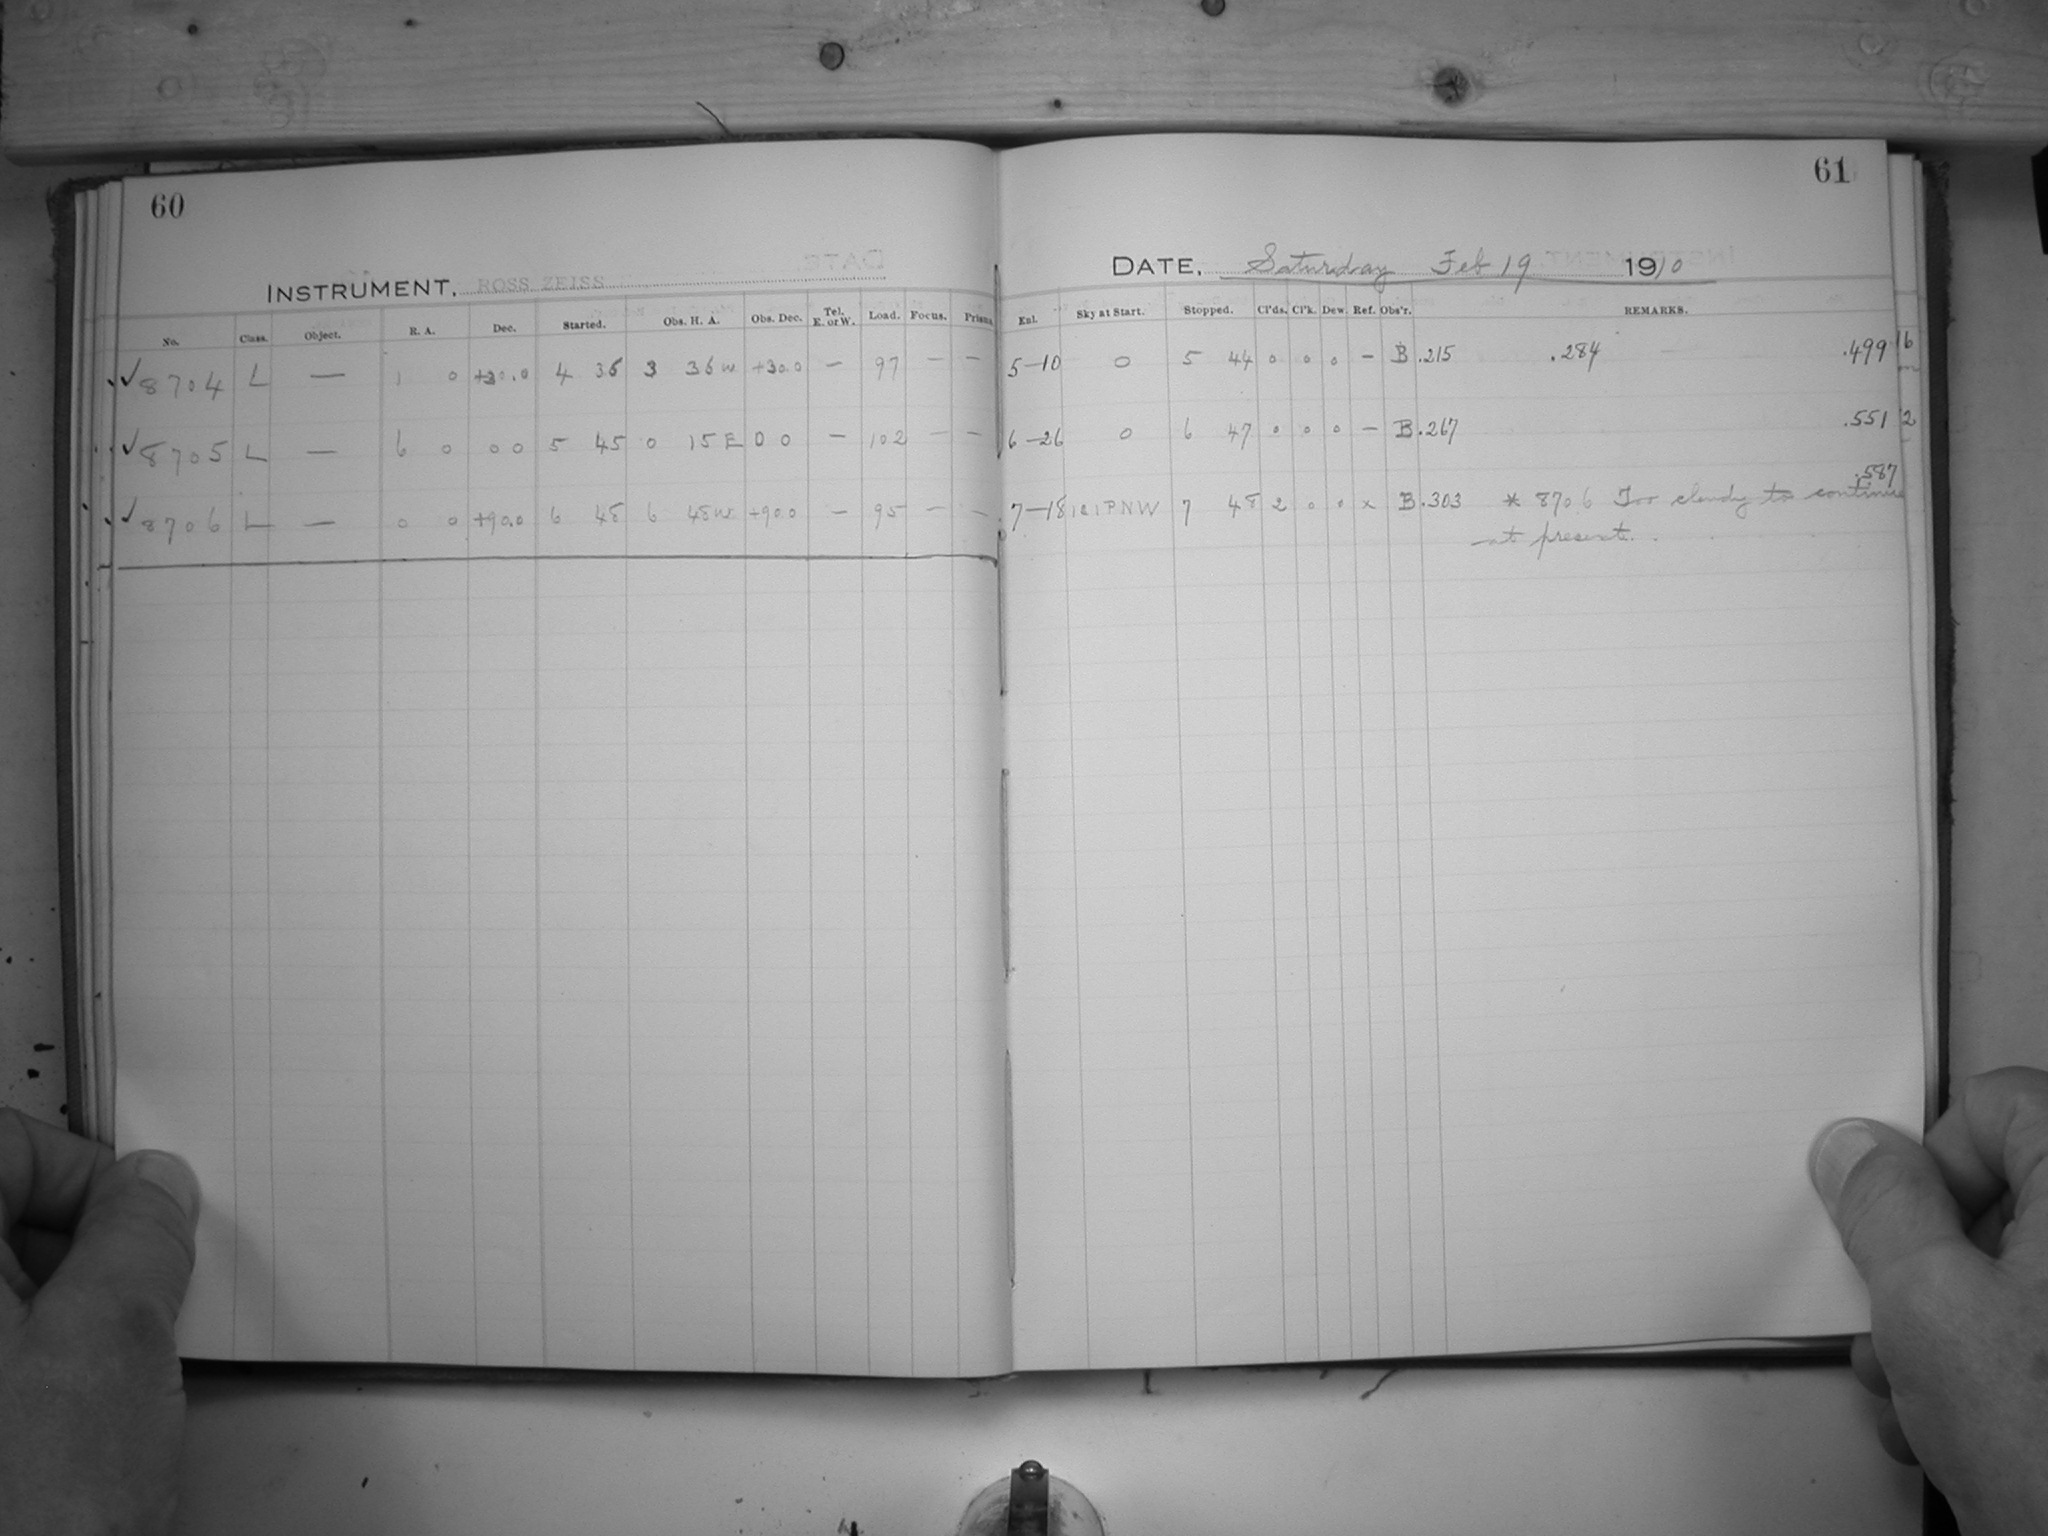 60
INSTRUMENT, ROSS ZEISS
No. Class. Object. R. A. Dec. Started. Obs. H. A. Obs. Dec. Tel. E. or W. Load. Focus. Prism
✓ 8704 L — 1 0 +30.0 4 36 3 36 w +30.0 — 97 — —
✓ 8705 L — 6 0 0 0 5 45 0 15 E 0 0 — 102 — —
✓ 8706 L — 0 0 +90.0 6 48 6 48 w +90.0 — 95 — —
61
DATE, Saturday Feb 19 1910
Exl. Sky at Start. Stopped. Cl'ds. Cl'k. Dew. Ref. Obs'r. REMARKS.
5-10 0 5 44 0 0 0 — B .215 .284 .499
6-26 0 6 47 0 0 0 — B .267 .551
.587
7-18 PNW 7 48 2 0 0 x B .303 * 8706 Too cloudy to continue
at present.